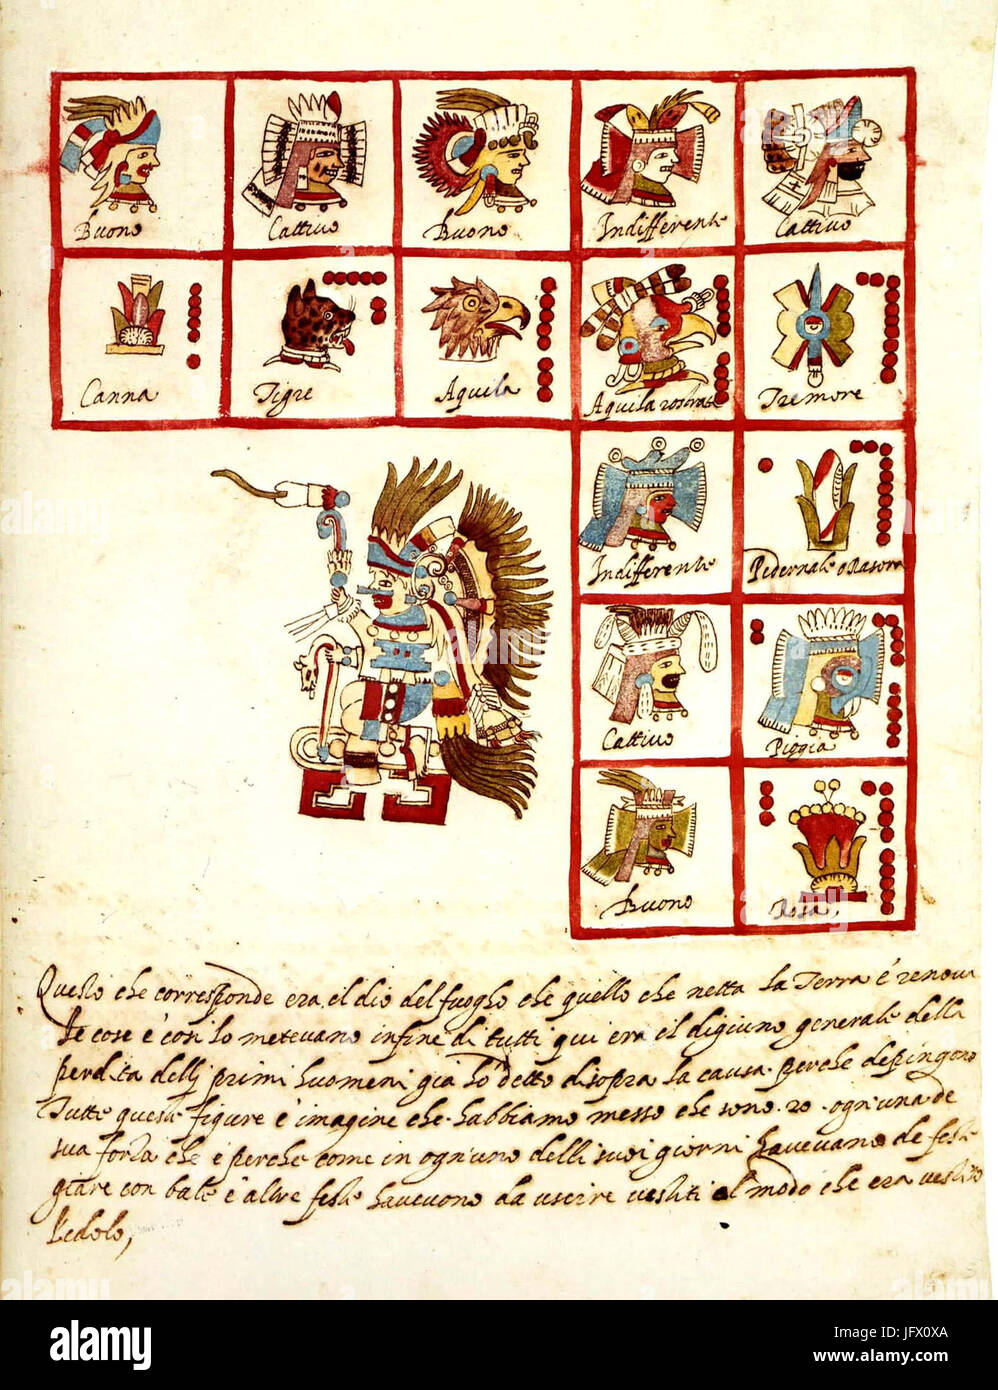 Buono Cattivo Buono Indifferente Cattivo
Canna Tigre Aquila Aquila Tremore
Indifferente Pedernale o Rasora
Cattivo Pioggia
Buono Rosa,
Questo che corresponde era el dio del fuogho che quello che netta la Terra é renova
le cose é cosi lo metevano infine di tutti qui era il digiuno generale della
perdita delli primi huomeni gia hó detto disopra la causa perche depingono
Tutte queste figure é imagine che habbiamo messo che sono 20 ogn'una de
sua forza che é perche come in ogn'uno delli suoi giorni havevano de feste
giare con bale é altre feste havevono da uscire vestiti al modo che era vestito
l'edolo,
alamy
alamy stock photo
JFX0XA
www.alamy.com